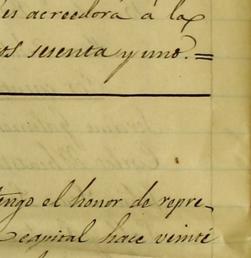 es acreedora á la
os sesenta y uno.=
engo el honor de repre-
Capital hace veinte